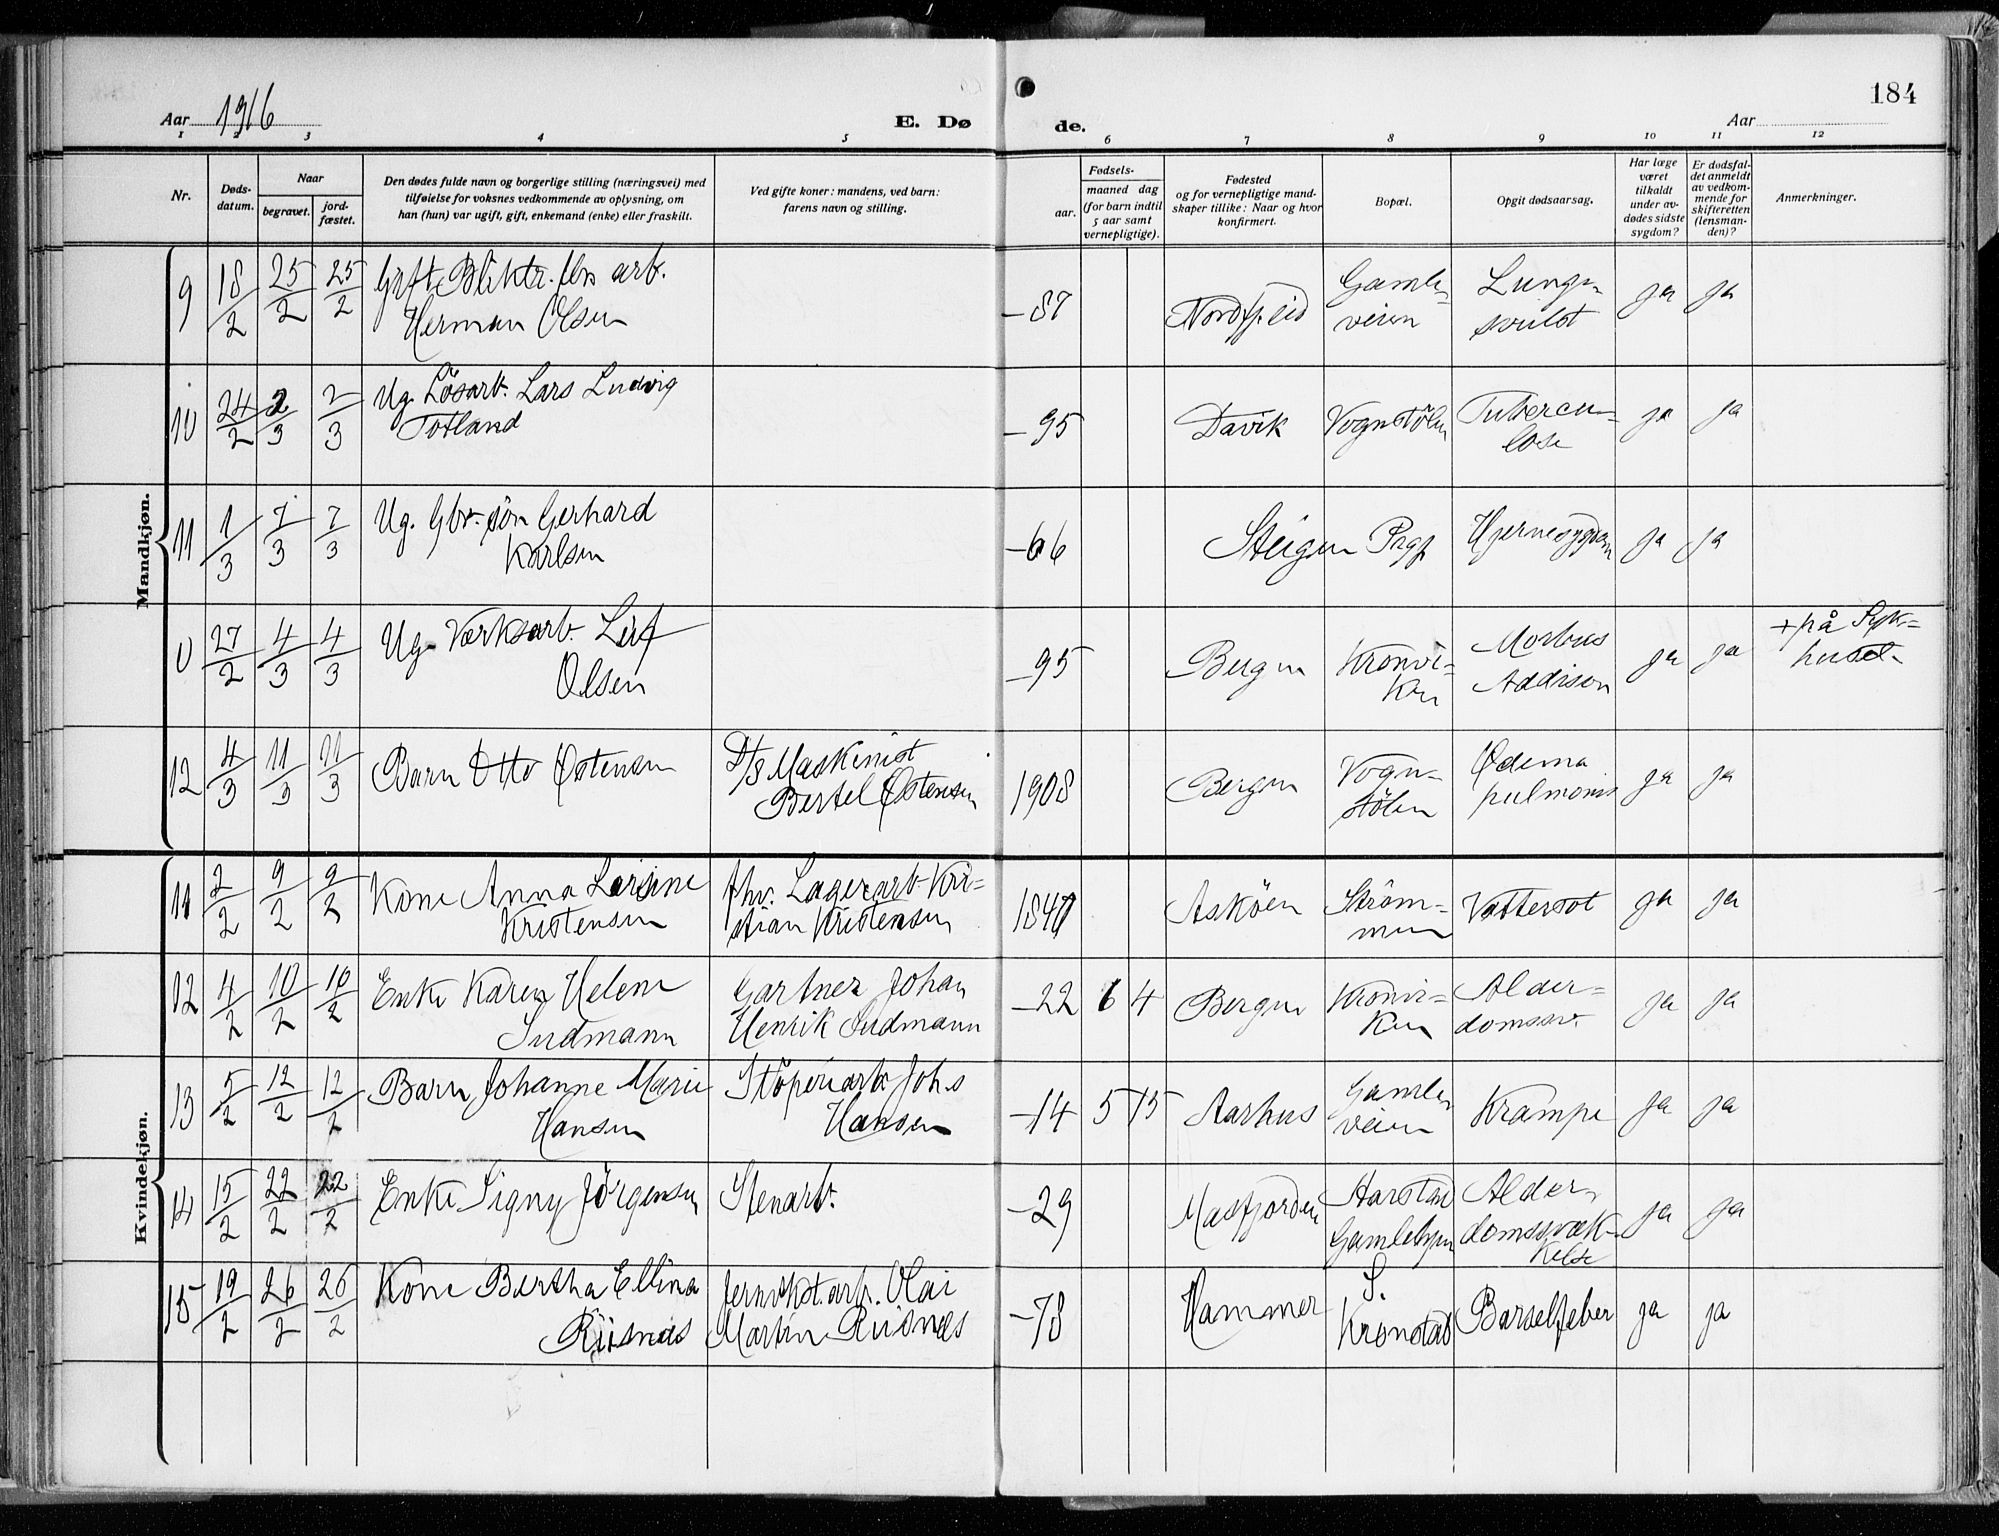 184
Aar 1916
E. Dø de.
Aar
1 2 3 4 5 6 7 8 9 10 11 12
Nr.
Døds-
datum.
Naar
begravet.
jord-
fæstet.
Den dødes fulde navn og borgerlige stilling (næringsvei) med
tilføielse for voksnes vedkommende av oplysning, om
han (hun) var ugift, gift, enkemand (enke) eller fraskilt.
Ved gifte koner: mandens, ved barn:
farens navn og stilling.
Fødsels-
aar.
maaned dag
(for barn indtil
5 aar samt
vernepligtige).
Fødested
og for vernepligtige mand-
skaper tillike: Naar og hvor
konfirmert.
Bopæl.
Opgit dødsaarsag.
Har læge
været
tilkaldt
under av-
dødes sidste
sygdom?
Er dødsfal-
det anmeldt
av vedkom-
mende for
skifteretten
(lensman-
den)?
Anmerkninger.
Mandkjøn.
9 18/2 25/2 25/2 Gift Bliktr. fbr. arb.
Herman Olsen
-87 Nordfjeid Gamle-
veien Lunge-
svulst ja ja
10 24/2 2/3 2/3 Ug. Løsarb. Lars Ludvig
Totland
-95 Davik Vognstølen Tubercu-
lose ja ja
11 1/3 7/3 7/3 Ug. Gbr. søn Gerhard
Karlsen
-66 Steigen Prgj. Hjernesygdom ja ja
0 27/2 4/3 4/3 Ug. Værksarb. Leif
Olsen
-95 Bergen Kronvi-
ken Morbus
Addison ja ja + på Syk-
huset.
12 4/3 11/3 11/3 Barn Otto Østensen D/S Maskinist
Bertel Østensen
1908 Bergen Vogn-
stølen Ødema
pulmonis ja ja
Kvindekjøn.
11 2/2 9/2 9/2 Kone Anna Lovisine
Kristensen fhv. Lagerarb. Kri-
stian Kristensen
1847 Askøen Strøm-
men Vattersot ja ja
12 4/2 10/2 10/2 Enke Karen Helene
Sudmann Gartner Johan
Henrik Sudmann
-22 6 4 Bergen Kronvi-
ken Alder-
domssv. ja ja
13 5/2 12/2 12/2 Barn Johanne Marie
Hansen Støperiarb. Johs
Hansen
-14 5 15 Aarhus Gamle
veien Krampe ja ja
14 15/2 22/2 22/2 Enke Signy Jørgensen Stenarb.
-29 Masfjorden Aarstad
Gamlehjem Alder-
domssvæk-
kelse ja ja
15 19/2 26/2 26/2 Kone Bertha Ellina
Riisnæs Jernvkst. arb. Olai
Martin Riisnæs
-78 Hammer S.
Kronstad Barselfeber ja ja